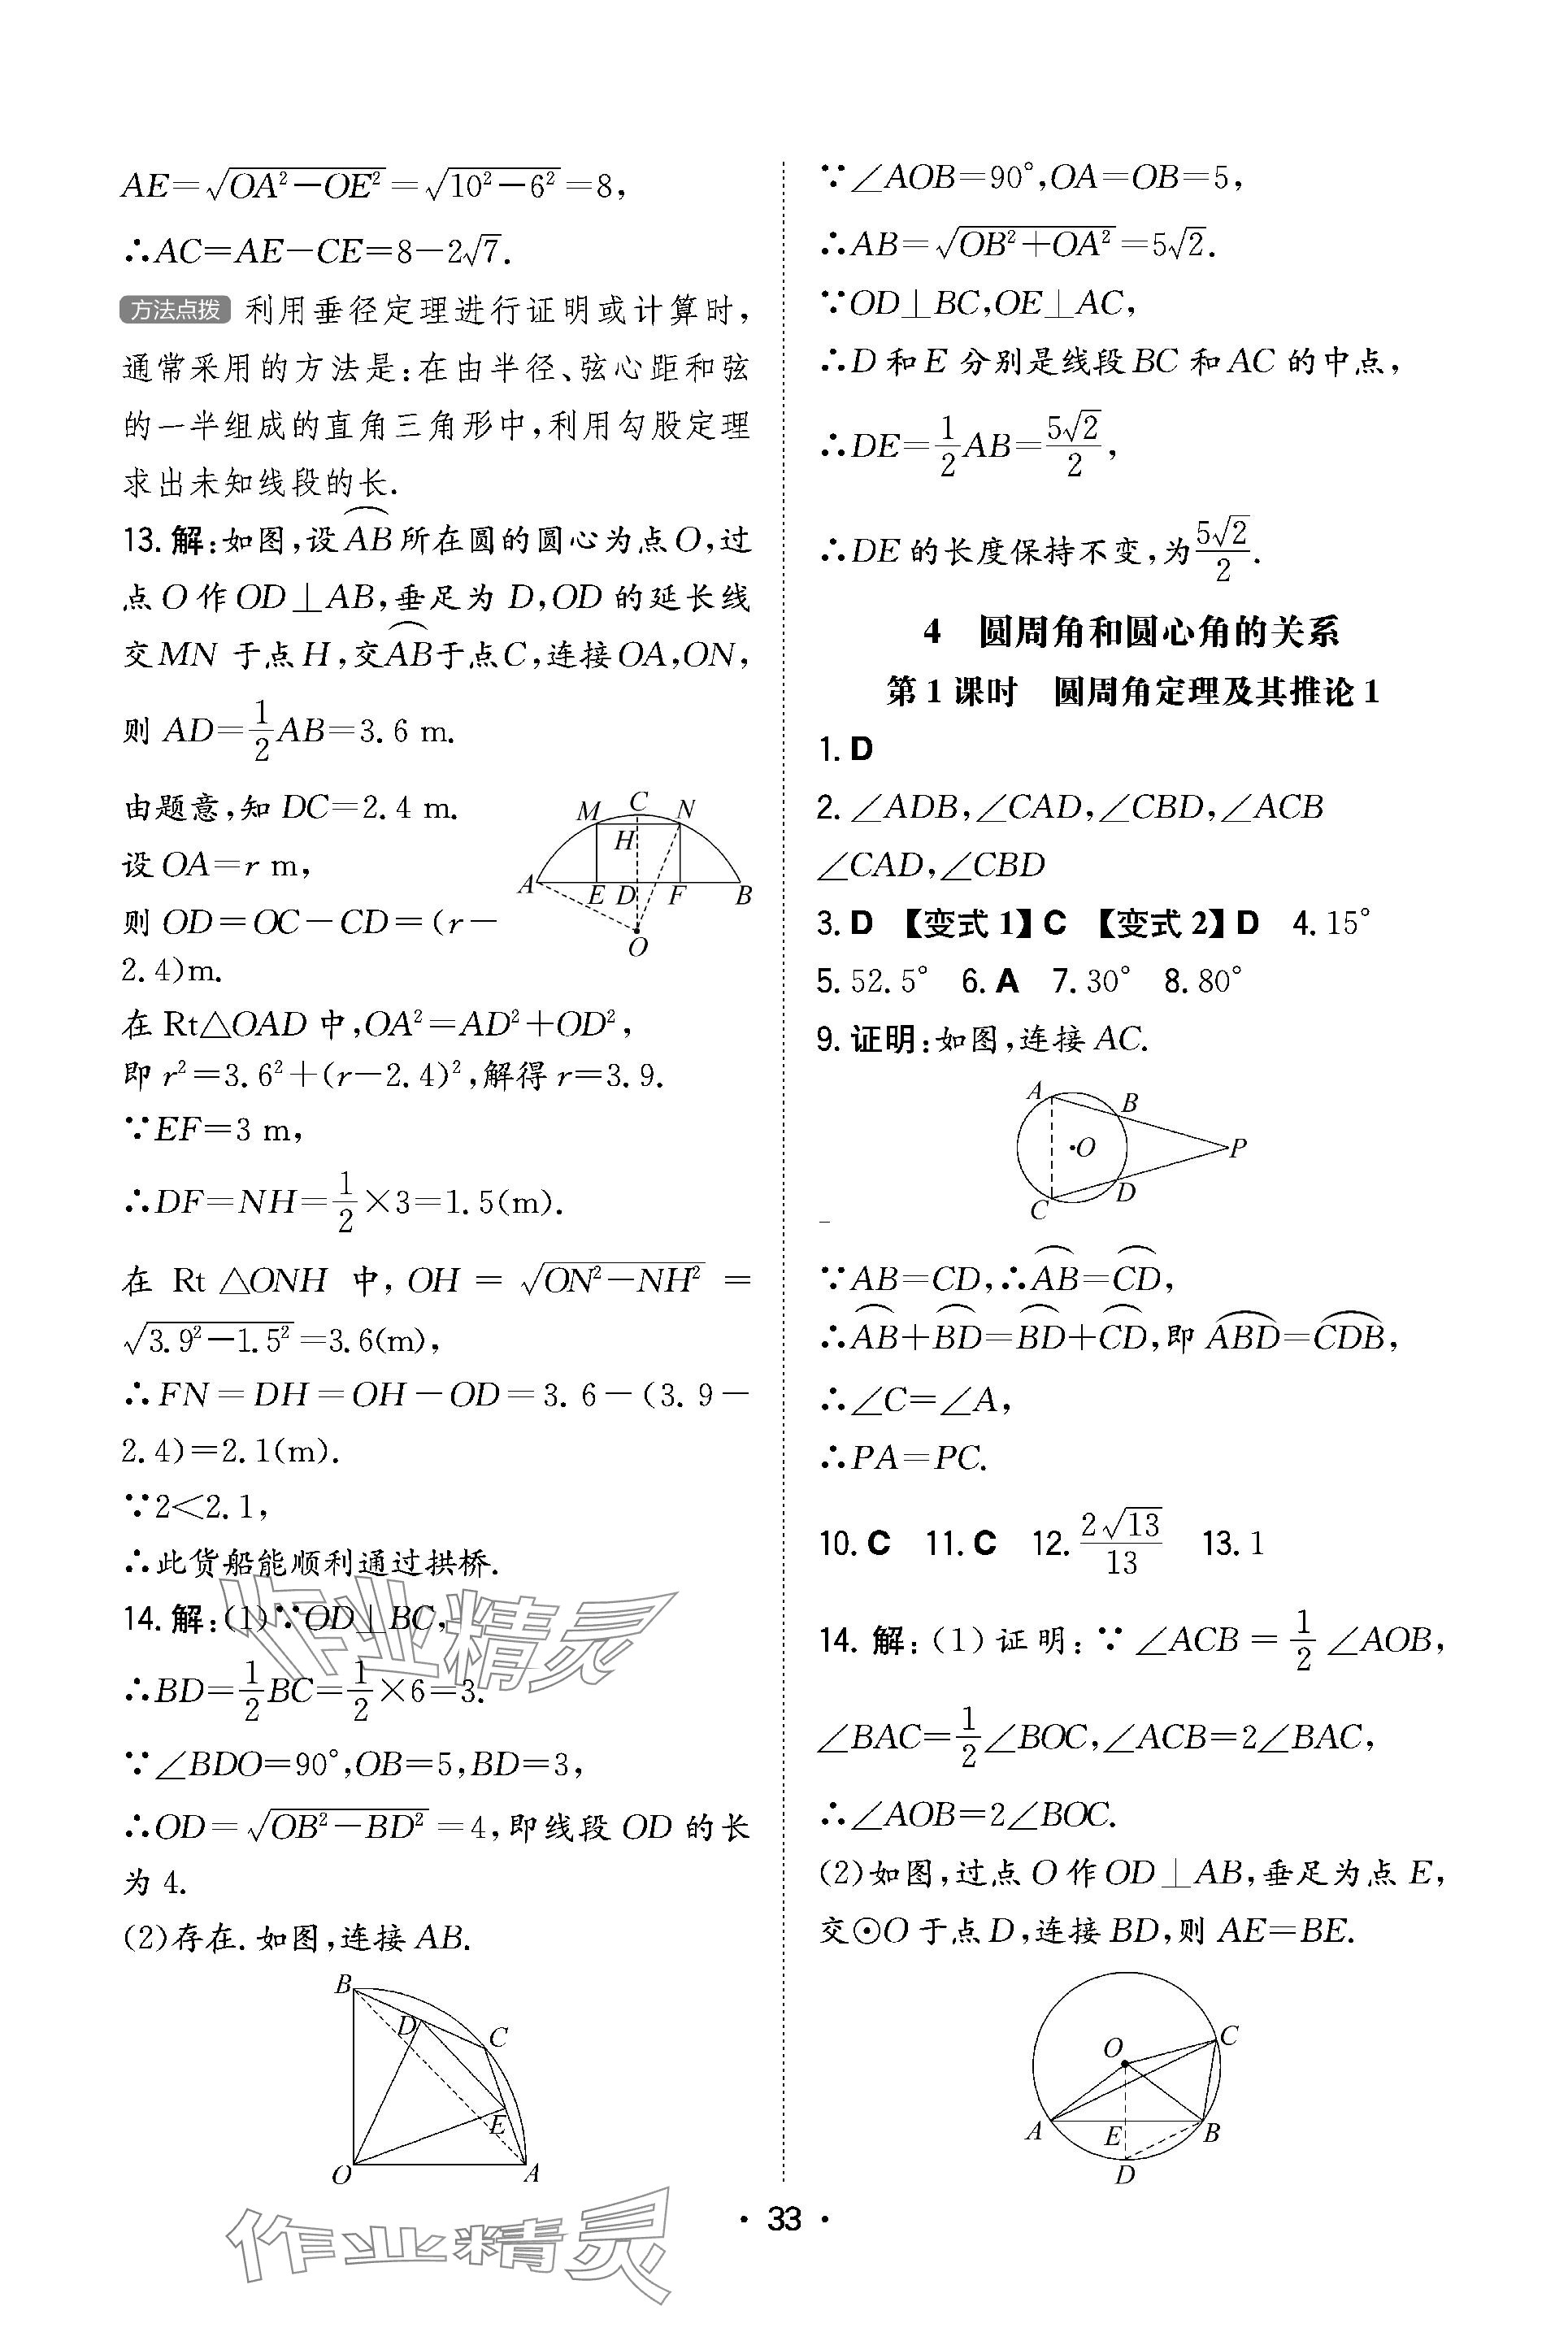 AE=√(OA²-OE²)=√(10²-6²)=8,
∴AC=AE-CE=8-2√7.
方法点拨 利用垂径定理进行证明或计算时,
通常采用的方法是:在由半径、弦心距和弦
的一半组成的直角三角形中,利用勾股定理
求出未知线段的长.
13.解:如图,设⌒AB所在圆的圆心为点O,过
点O作OD⊥AB,垂足为D,OD的延长线
交MN于点H,交⌒AB于点C,连接OA,ON,
则AD=1/2AB=3.6 m.
由题意,知DC=2.4 m.
设OA=r m,
则OD=OC-CD=(r-
2.4)m.
M C N
H
A E D F B
O
在Rt△OAD中,OA²=AD²+OD²,
即r²=3.6²+(r-2.4)²,解得r=3.9.
∵EF=3 m,
∴DF=NH=1/2×3=1.5(m).
在 Rt △ONH 中, OH = √(ON²-NH²) =
√(3.9²-1.5²)=3.6(m),
∴FN=DH=OH-OD=3.6-(3.9-
2.4)=2.1(m).
∵2<2.1,
∴此货船能顺利通过拱桥.
14.解:(1)∵OD⊥BC,
∴BD=1/2BC=1/2×6=3.
∵∠BDO=90°,OB=5,BD=3,
∴OD=√(OB²-BD²)=4,即线段OD的长
为4.
(2)存在.如图,连接AB.
B
D C
E
O A
∵∠AOB=90°,OA=OB=5,
∴AB=√(OB²+OA²)=5√2.
∵OD⊥BC,OE⊥AC,
∴D和E分别是线段BC和AC的中点,
∴DE=1/2AB=5√2/2,
∴DE的长度保持不变,为5√2/2.
4 圆周角和圆心角的关系
第1课时 圆周角定理及其推论1
1.D
2.∠ADB,∠CAD,∠CBD,∠ACB
∠CAD,∠CBD
3.D 【变式1】C 【变式2】D 4.15°
5.52.5° 6.A 7.30° 8.80°
9.证明:如图,连接AC.
A B
·O P
C D
∵AB=CD,∴⌒AB=⌒CD,
∴⌒AB+⌒BD=⌒BD+⌒CD,即⌒ABD=⌒CDB,
∴∠C=∠A,
∴PA=PC.
10.C 11.C 12.2√13/13 13.1
14.解:(1)证明:∵∠ACB=1/2∠AOB,
∠BAC=1/2∠BOC,∠ACB=2∠BAC,
∴∠AOB=2∠BOC.
(2)如图,过点O作OD⊥AB,垂足为点E,
交⊙O于点D,连接BD,则AE=BE.
O C
A E B
D
· 33 ·
作业精灵
作业精灵